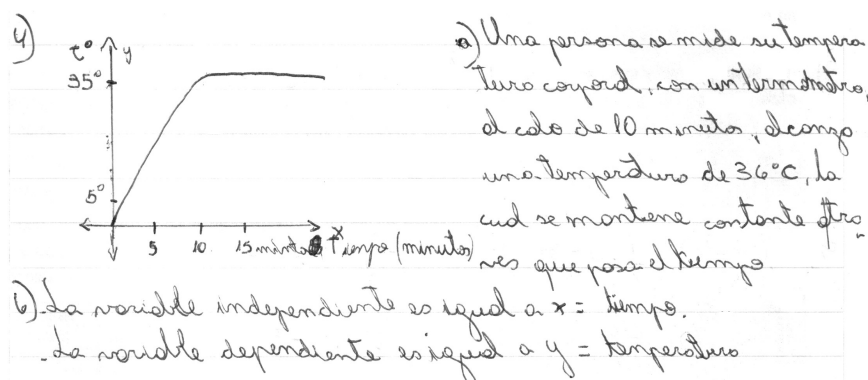 4)
t° y
35°
5°
5 10 15 Tiempo (minutos)
x
a) Una persona se mide su tempera
tura corporal, con un termómetro,
al cabo de 10 minutos, alcanza
una temperatura de 36°C, la
cual se mantiene contante atra
ves que pasa el tiempo
b) - La variable independiente es igual a x = tiempo.
- La variable dependiente es igual a y = temperatura